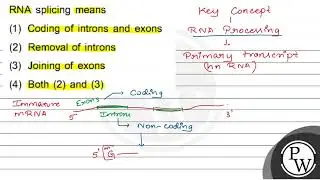 RNA splicing means
(1) Coding of introns and exons
(2) Removal of introns
(3) Joining of exons
(4) Both (2) and (3)
Key Concept
RNA Processing
Primary transcript
(hn RNA)
Immature
mRNA
Exons
Coding
5'
3'
Intron
Non-coding
5'
G
PW